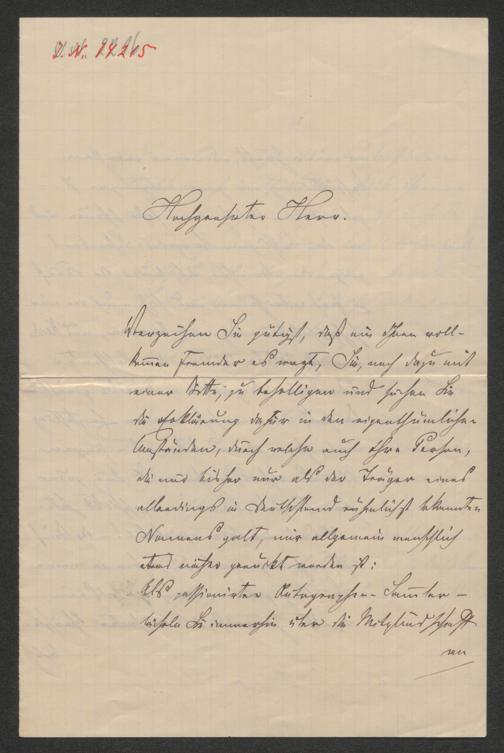 D. N. 22265
Hochgeehrter Herr.
Verzeihen Sie gütigst, daß ein Ihnen voll-
kommen Fremder es wagt, Sie, noch dazu mit
einer Bitte, zu behelligen und suchen Sie
die Erklärung dafür in den eigenthümlichen
Umständen, durch welche auch Ihre Person,
die mir bisher nur als der Träger eines
allerdings in Deutschland rühmlichst bekannten
Namens galt, mir allgemein menschlich
etwas näher gerückt worden ist:
Als passionirter Autographen-Sammler –
lächeln Sie immerhin über die Mitgliedschaft
an